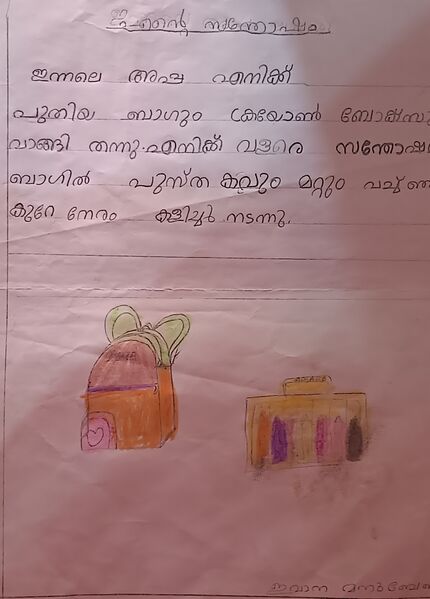 എന്റെ സന്തോഷം
ഇന്നലെ അപ്പ എനിക്ക്
പുതിയ ബാഗും ക്രയോൺ ബോക്സും
വാങ്ങി തന്നു. എനിക്ക് വളരെ സന്തോഷ
ബാഗിൽ പുസ്ത കവും മറ്റും വച്ച് ഞ
കുറേ നേരം കളിച്ചു നടന്നു.
ഇവാന